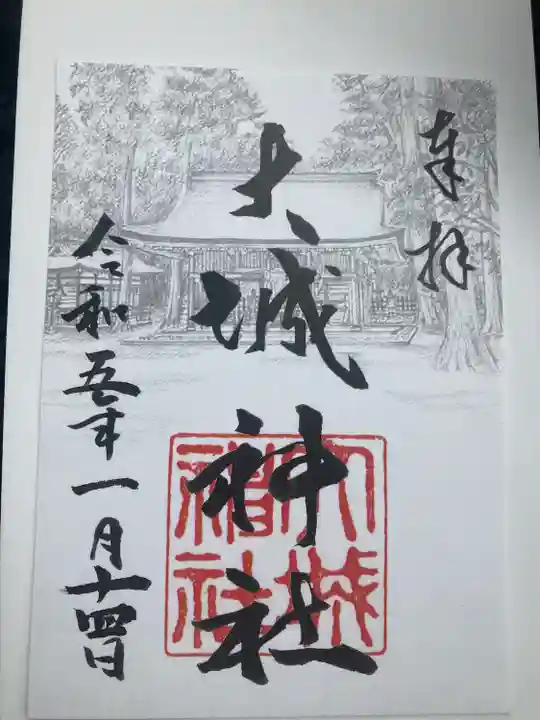 奉拝
大城神社
大城
神社
令和五年一月十四日